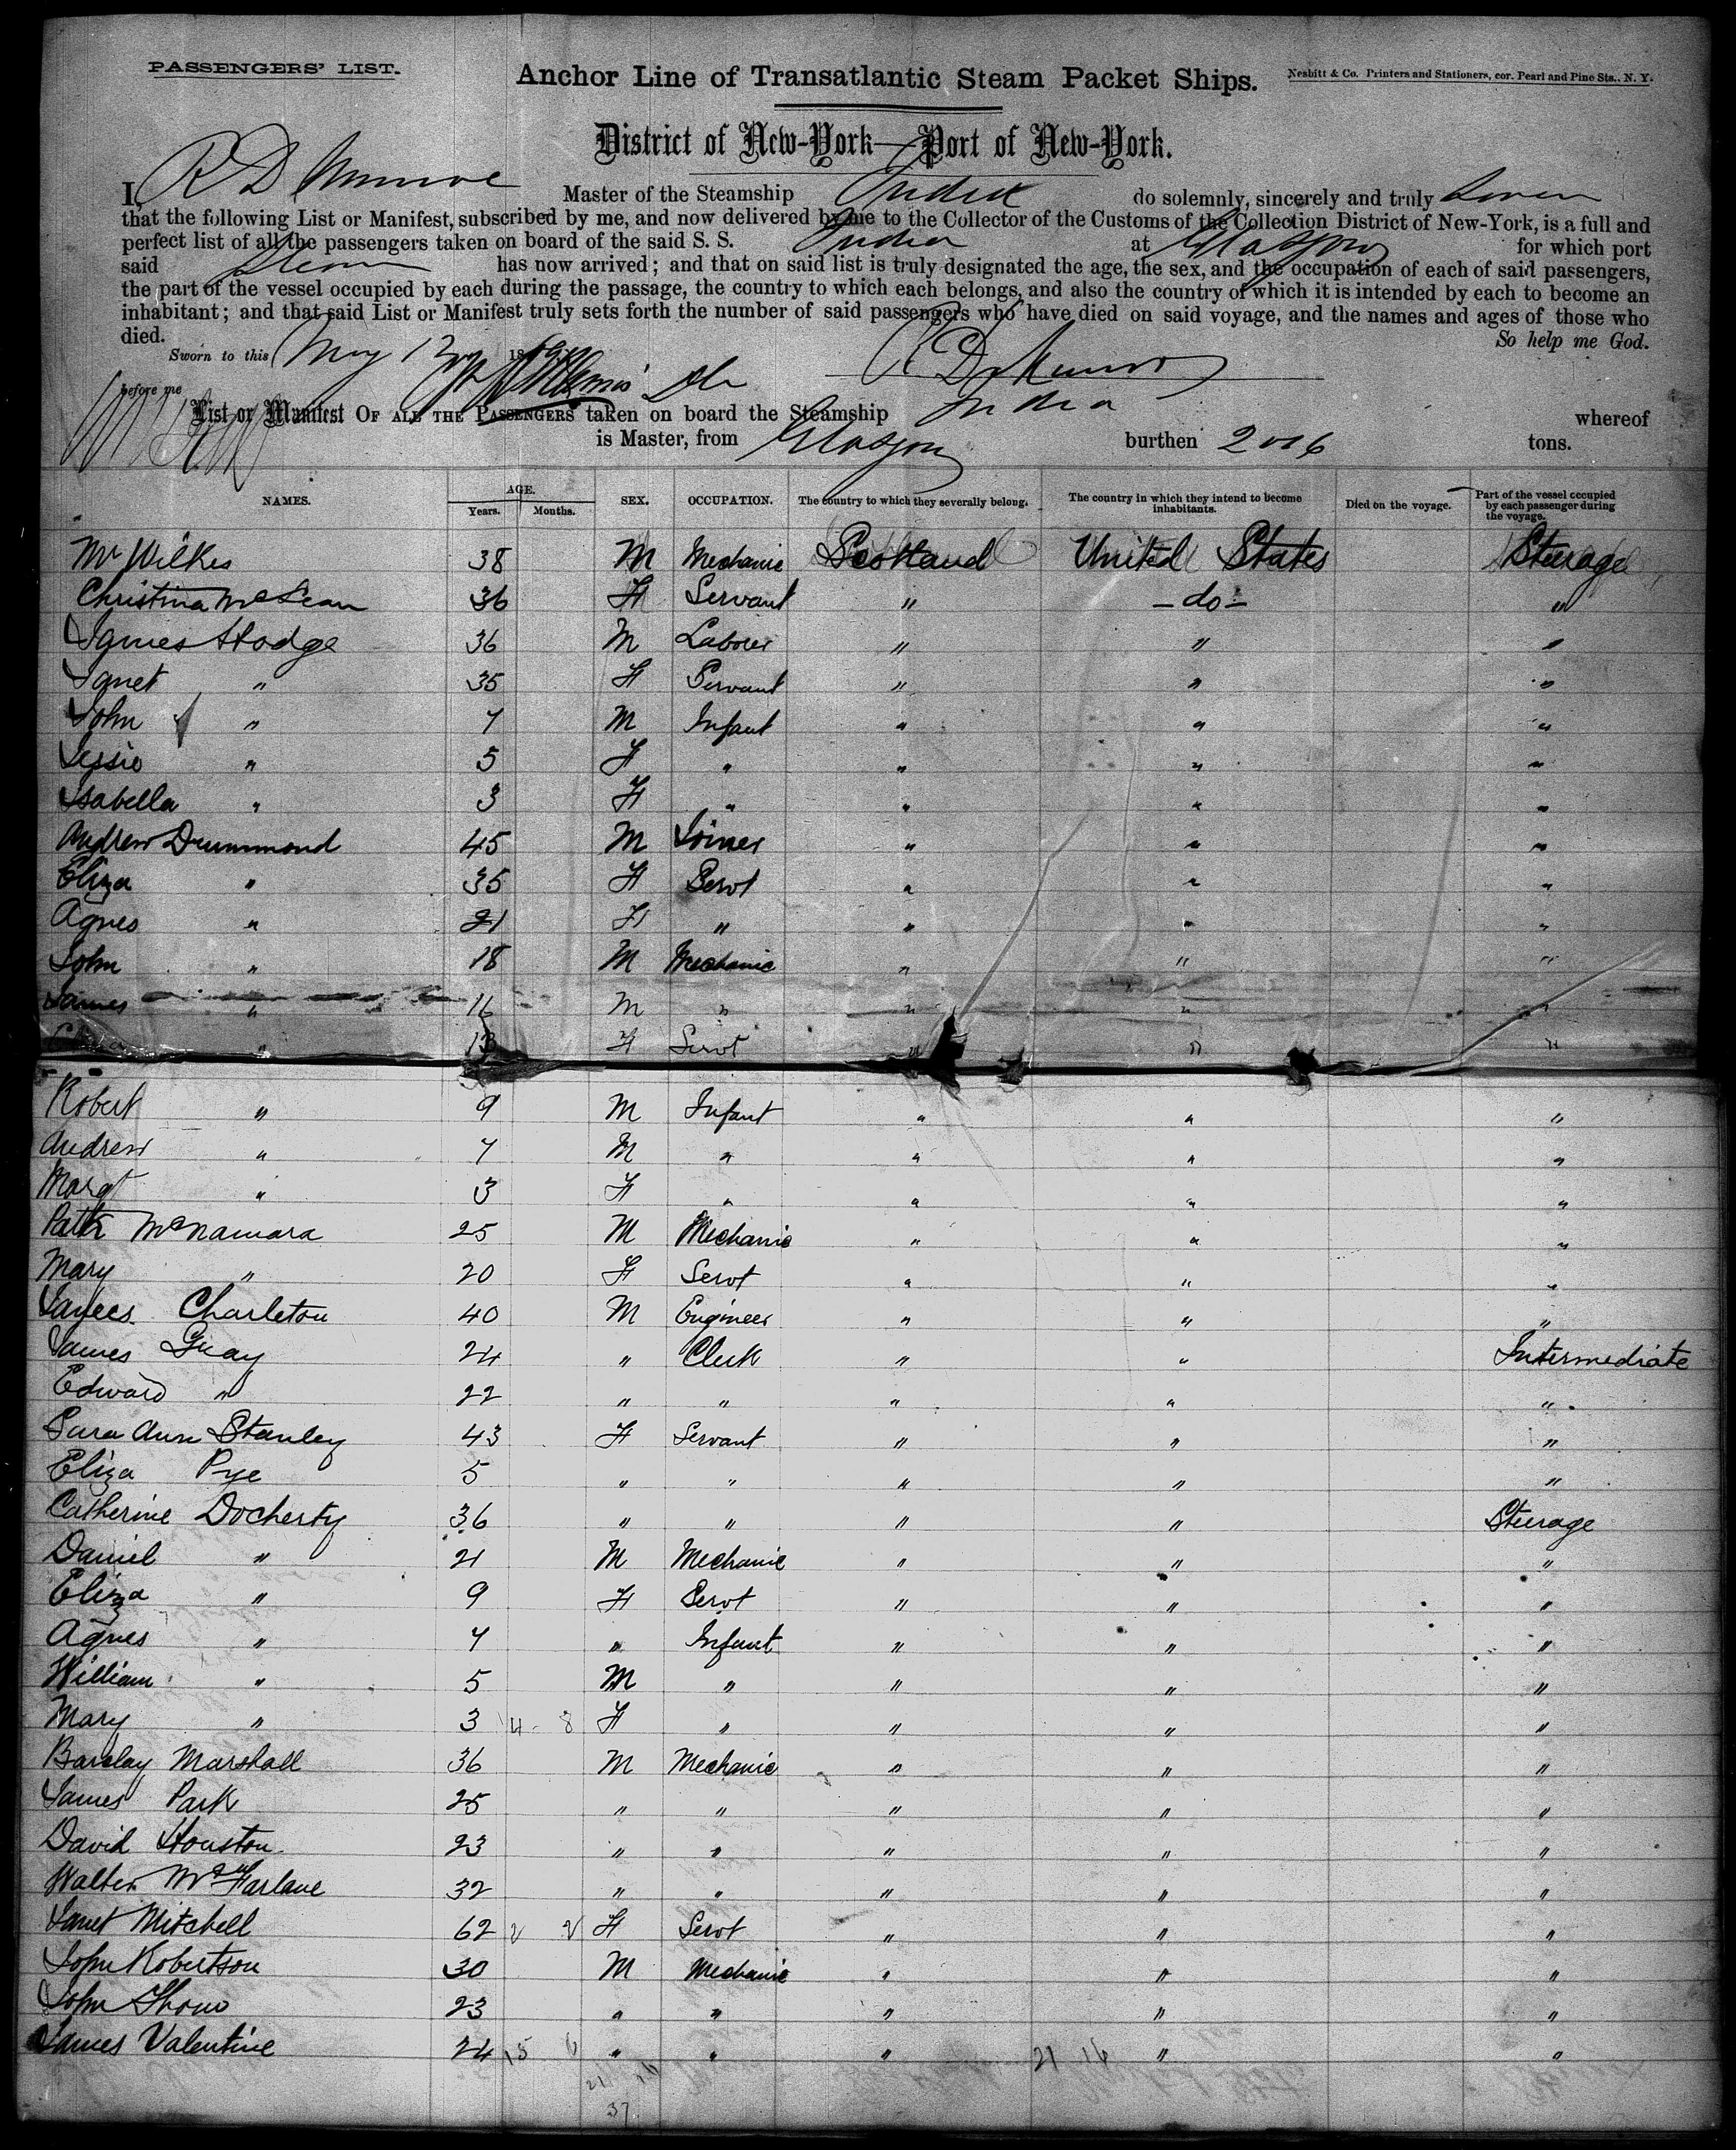 PASSENGERS' LIST.
Anchor Line of Transatlantic Steam Packet Ships.
Nesbitt & Co. Printers and Stationers, cor. Pearl and Pine Sts., N. Y.
District of New-York—Port of New-York.
I, R D Munroe Master of the Steamship India do solemnly, sincerely and truly Swear
that the following List or Manifest, subscribed by me, and now delivered by me to the Collector of the Customs of the Collection District of New-York, is a full and
perfect list of all the passengers taken on board of the said S. S. India at Glasgow for which port
said Steamer has now arrived; and that on said list is truly designated the age, the sex, and the occupation of each of said passengers,
the part of the vessel occupied by each during the passage, the country to which each belongs, and also the country of which it is intended by each to become an
inhabitant; and that said List or Manifest truly sets forth the number of said passengers who have died on said voyage, and the names and ages of those who
died. So help me God.
Sworn to this May 12 1869 R D Munro
before me
List or Manifest OF ALL THE PASSENGERS taken on board the Steamship India whereof
is Master, from Glasgow burthen 2006 tons.
NAMES. AGE. Years. Months. SEX. OCCUPATION. The country to which they severally belong. The country in which they intend to become inhabitants. Died on the voyage. Part of the vessel occupied by each passenger during the voyage.
Mr Wilkes 38 M Mechanic Scotland United States Steerage
Christina McLean 36 F Servant " - do - "
James Hodge 36 M Labourer " " "
Janet " 35 F Servant " " "
John " 7 M Infant " " "
Jessie " 5 F " " " "
Isabella " 3 F " " " "
Andrew Drummond 45 M Joiner " " "
Eliza " 35 F Servt " " "
Agnes " 21 F " " " "
John " 18 M Mechanic " " "
James " 16 M " " " "
" 13 F Servt " " "
Robert " 9 M Infant " " "
Andrew " 7 M " " " "
Margt " 3 F " " " "
Patk McNamara 25 M Mechanic " " "
Mary " 20 F Servt " " "
James Charleton 40 M Engineer " " "
James Gray 24 " Clerk " " Intermediate
Edward " 22 " " " " "
Sara Ann Stanley 43 F Servant " " "
Eliza Pye 5 " " " " "
Catherine Docherty 36 " " " " Steerage
Daniel " 21 M Mechanic " " "
Eliza " 9 F Servt " " "
Agnes " 7 " Infant " " "
William " 5 M " " " "
Mary " 3 14 - 8 F " " " "
Barclay Marshall 36 M Mechanic " " "
James Park 25 " " " " "
David Houston 23 " " " " "
Walter McFarlane 32 " " " " "
Janet Mitchell 62 2 2 F Servt " " "
John Robertson 30 M Mechanic " " "
John Thom 23 " " " " "
James Valentine 24 15 6 " " " 21 16 " "
21 16
37